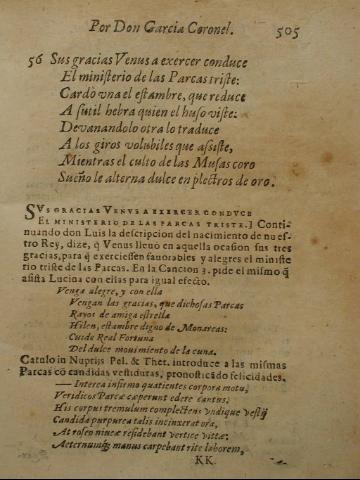 Por Don Garcia Coronel.
505
56 Sus gracias Venus a exercer conduce
El ministerio de las Parcas triste:
Cardò vna el estambre, que reduce
A sutil hebra quien el huso viste:
Devanandolo otra lo traduce
A los giros volubiles que assiste,
Mientras el culto de las Musas coro
Sueño le alterna dulce en plectros de oro.
SVS GRACIAS VENUS A EXERCER CONDVCE
EL MINISTERIO DE LAS PARCAS TRISTE.] Conti-
nuando don Luis la descripcion del nacimento de nuestro
Rey, dize, q̃ Venus lleuò en aquella ocasion sus tres
gracias, para q̃ exerciessen fauorables y alegres el ministe
rio triste de las Parcas. En la Cancion 3. pide el mismo q̃
assista Lucina con ellas para igual efecto.
Venga alegre, y con ella
Vengan las gracias, que dichosas Parcas
Rayos de amiga estrella
Hilen, estambre digno de Monarcas:
Cuide Real Fortuna
Del dulce mouimiento de la cuna.
Catulo in Nuptijs Pel. & Thet. introduce a las mismas
Parcas cõ candidas vestiduras, pronosticãdo felicidades.
— Interea infirmo quatientes corpora motu,
Veridicos Parcæ cæperunt edere cantus,
His corpus tremulum complectens vndique vestis
Candida purpurea talis incinxerat ora,
At roseo niueæ residebant vertice vittæ:
Aeternumq̃ manus carpebant rite laborem,
KK